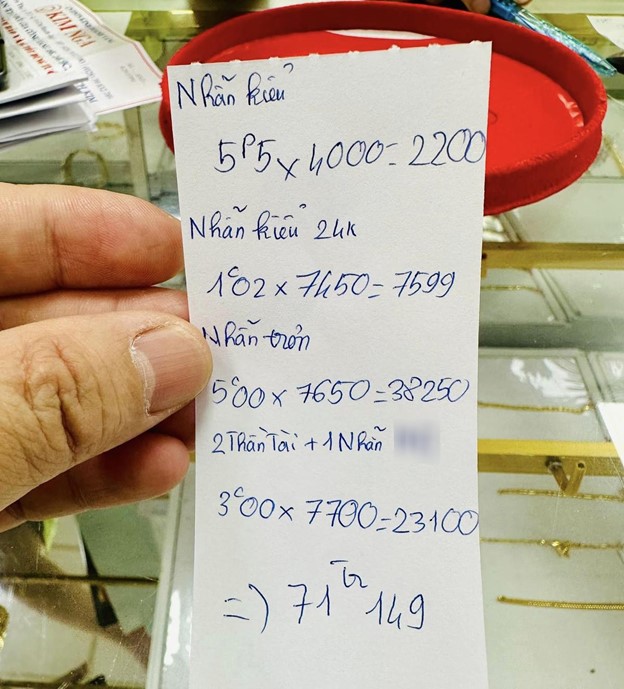 KIM NGA
Nhẫn kiểu
5P5 x 4000 = 2200
Nhẫn kiểu 24K
1c02 x 7450 = 7599
Nhẫn trơn
5c00 x 7650 = 38250
2 Thần Tài + 1 Nhẫn
3c00 x 7700 = 23100
=) 71Tr 149